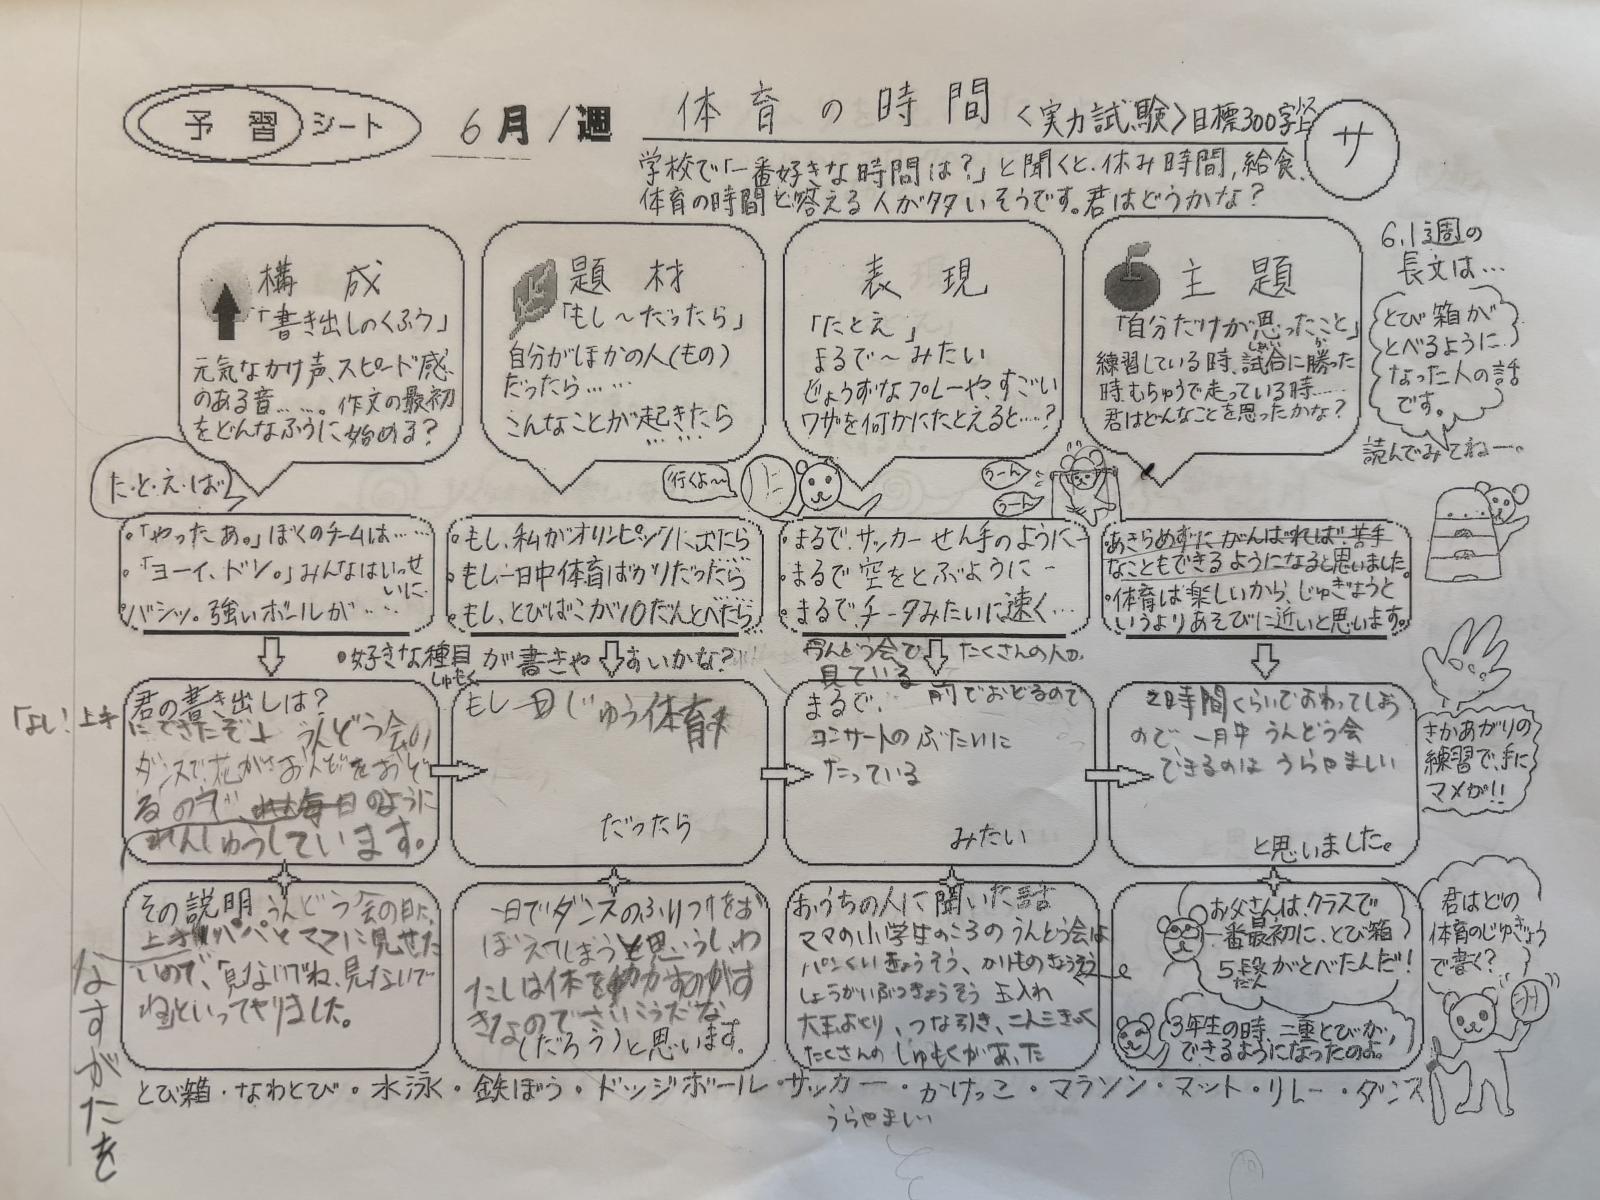 予習シート
6月1週
体育の時間
〈実力試験〉目標300字
サ
学校で「一番好きな時間は？」と聞くと、休み時間、給食、
体育の時間と答える人が多いそうです。君はどうかな？
構成
「書き出しのくふう」
元気なかけ声、スピード感
のある音……。作文の最初
をどんなふうに始める？
題材
「もし〜だったら」
自分がほかの人(もの)
だったら……
こんなことが起きたら
……
表現
「たとえ」
まるで〜みたい
じょうずなプレーや、すごい
ワザを何かにたとえると…？
主題
「自分だけが思ったこと」
練習している時、試合に勝った
しあい か
時、むちゅうで走っている時……
君はどんなことを思ったかな？
6.1週の
長文は…
とび箱が
とべるように
なった人の話
です。
読んでみてねー。
た・と・え・ば
行くよ〜
うーん
うーん
・「やったあ。」ぼくのチームは……
・「ヨーイ、ドン。」みんなはいっせ
いに…
・バシッ。強いボールが…
・もし、私がオリンピックに出たら
・もし、一日中体育ばかりだったら
・もし、とびばこが10だんとべたら
・まるで、サッカーせん手のように
・まるで空をとぶように
・まるで、チータみたいに速く…
・あきらめずにがんばれば苦手
なこともできるようになると思いました。
・体育は楽しいから、じゅぎょうと
いうよりあそびに近いと思います。
・好きな種目が書きやすいかな？
しゅもく
君の書き出しは？
「よし！上手
にできたぞ」うんどう会の
ダンスで、花がさおんどをおど
るので 毎日のように
れんしゅうしています。
もし一日じゅう体育
だったら
うんどう会で たくさんの人の
見ている 前でおどるので
まるで、
コンサートのぶたいに
たっている
みたい
2時間くらいでおわってしまう
ので、一月中うんどう会
できるのは うらやましい
と思いました。
さかあがりの
練習で、手に
マメが!!
その説明 うんどう会の日に、
上手 パパとママに見せた
いので、「見ないでね、見ないで
ね」といってやりました。
なすがたを
一日でダンスのふりつけをお
ぼえてしまうと思いうし、わ
たしは体を動かすのがす
きなのでさいこうだな
(だろう)と思います。
おうちの人に聞いた話
ママの小学生のころのうんどう会は
パンくいきょうそう、かりものきょうそう
しょうがいぶつきょうそう 玉入れ
大玉 、つな引き、二人三きゃく
たくさんのしゅもくがあった
お父さんは、クラスで
一番最初に、とび箱
5段がとべたんだ！
だん
3年生の時、二重とびが、
できるようになったのよ。
君はどの
体育のじゅぎょう
で書く？
とび箱・なわとび・水泳・鉄ぼう・ドッジボール・サッカー・かけっこ・マラソン・マット・リレー・ダンス
うらやましい